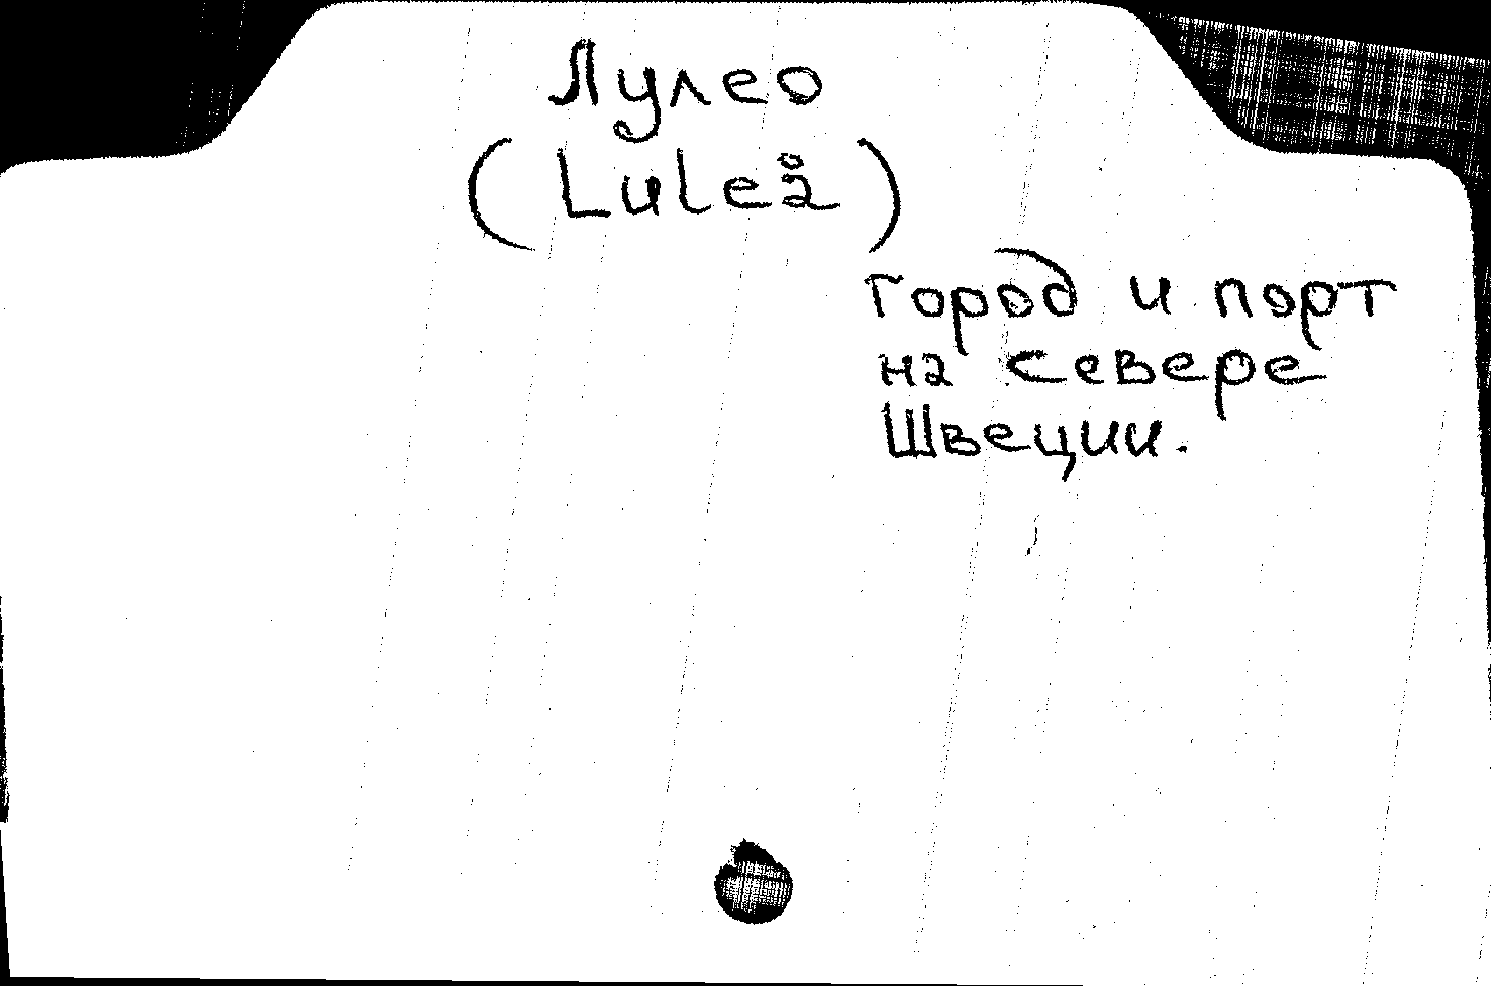 Лулео
(Luleå)
город и порт
на севере
Швеции.